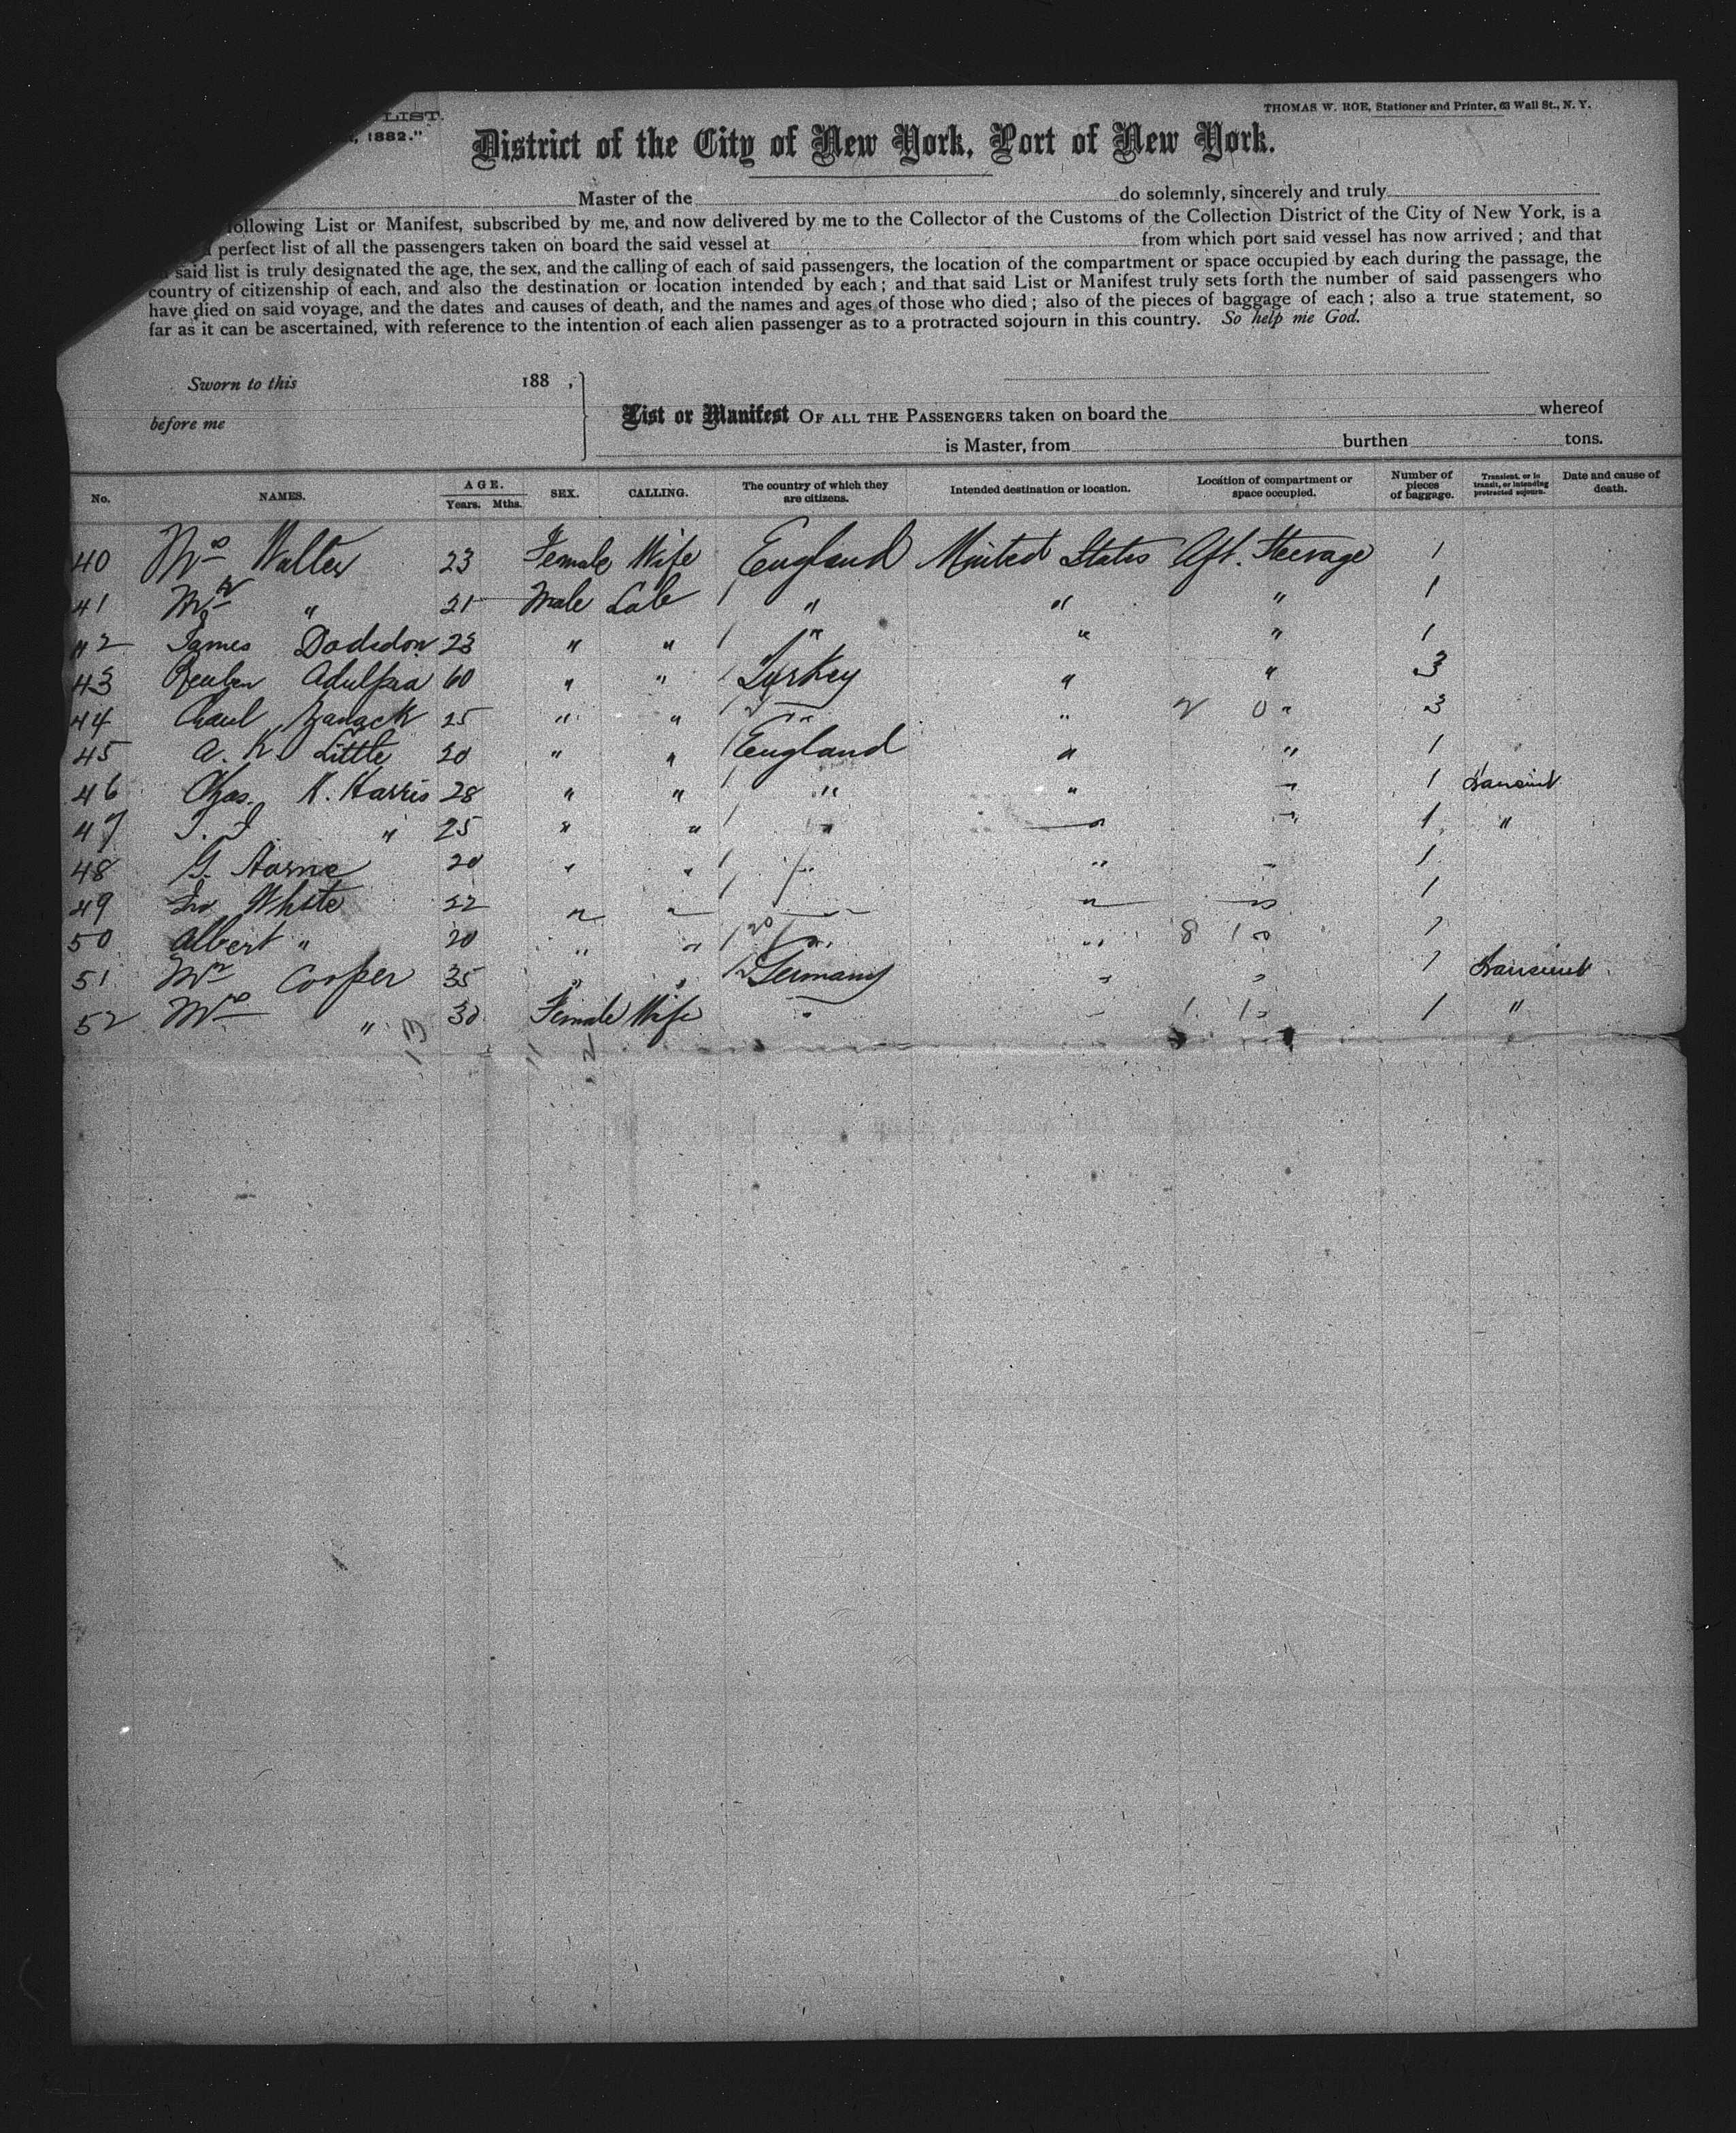 LIST.
, 1882."
THOMAS W. ROE, Stationer and Printer, 63 Wall St., N. Y.
District of the City of New York, Port of New York.
Master of the do solemnly, sincerely and truly
following List or Manifest, subscribed by me, and now delivered by me to the Collector of the Customs of the Collection District of the City of New York, is a
perfect list of all the passengers taken on board the said vessel at from which port said vessel has now arrived; and that
said list is truly designated the age, the sex, and the calling of each of said passengers, the location of the compartment or space occupied by each during the passage, the
country of citizenship of each, and also the destination or location intended by each; and that said List or Manifest truly sets forth the number of said passengers who
have died on said voyage, and the dates and causes of death, and the names and ages of those who died; also of the pieces of baggage of each; also a true statement, so
far as it can be ascertained, with reference to the intention of each alien passenger as to a protracted sojourn in this country. So help me God.
Sworn to this 188 ,
before me
List or Manifest OF ALL THE PASSENGERS taken on board the whereof
is Master, from burthen tons.
No. NAMES. AGE. Years. Mths. SEX. CALLING. The country of which they are citizens. Intended destination or location. Location of compartment or space occupied. Number of pieces of baggage. Transient, or in transit, or intending protracted sojourn. Date and cause of death.
40 Mrs Walter 23 Female Wife England United States Aft. Steerage 1
41 Mr " 21 Male Lab " " " 1
42 James Dodsdon 23 " " " " " 1
43 Reuben 60 " " Turkey " " 3
44 25 " " " " 2 0 " 3
45 A. K. Little 20 " " England " " 1
46 Chas. K. Harris 28 " " " " " 1 Transient
47 " 25 " " " " " 1 "
48 G. 20 " " " " " 1
49 White 22 " " " " " 1
50 Albert " 20 " " " " 8 1 " 1
51 Mr Cooper 35 " " Germany " " 1 Transient
52 Mrs " 30 Female Wife " " 1 1 " 1 "
13 11 2